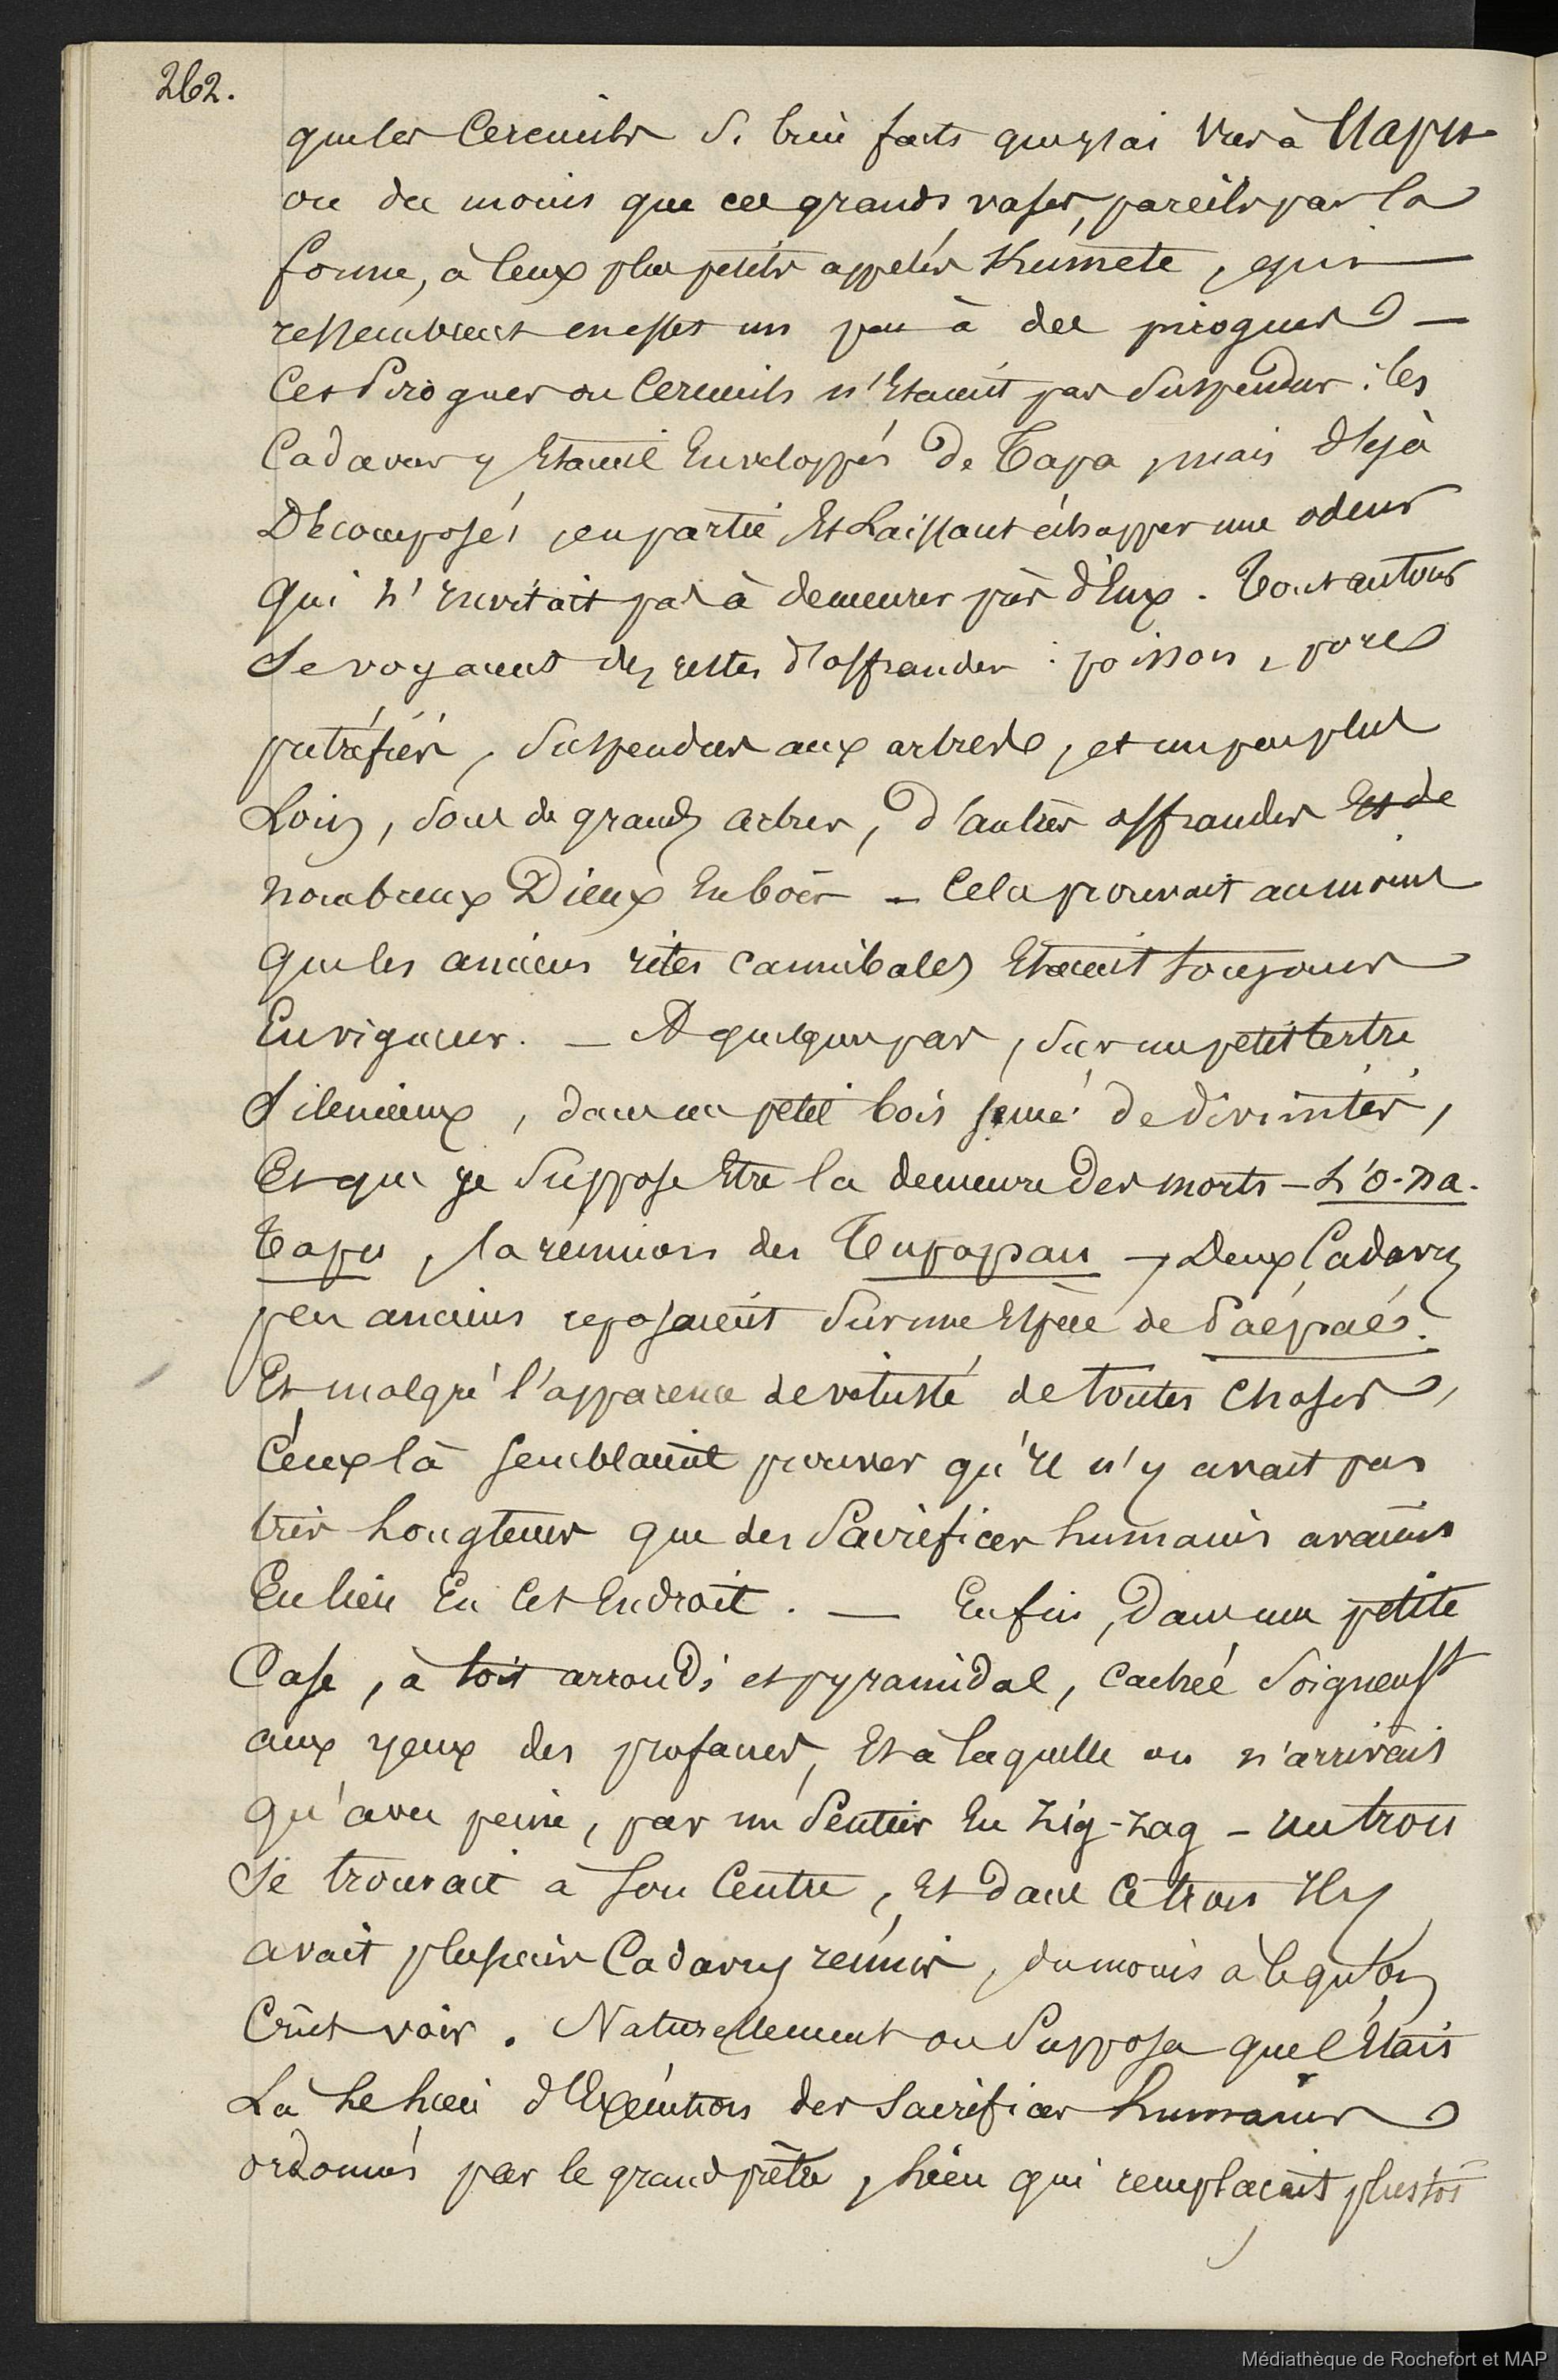 262.
que les Cercueils si bien faits que j'ai vus à Uapu
ou du moins que ces grands vases, pareils par la
forme, à ceux plus petits appelés Kumete, qui
ressemblent en effet un peu à des pirogues —
Ces Pirogues ou Cercueils n'étaient pas suspendus : les
Cadavres y étaient Enveloppés de Tapa, mais déjà
Décomposés en partie, et Laissant échapper une odeur
qui n'invitait pas à demeurer près d'Eux. Tout autour
se voyaient des restes d'offrandes : poisson, porcs
putréfiés, suspendus aux arbres, et un peu plus
Loin, sous de grands arbres, d'autres offrandes et de
nombreux Dieux En bois — Cela prouvait au moins
que les anciens rites cannibales Etaient toujours
En vigueur. — A quelques pas, sur un petit tertre
silencieux, dans un petit bois semé de divinités,
Et que je suppose Etre la demeure des morts — L'O-na-
Tapu, la réunion des Tupapau —, Deux Cadavres
peu anciens reposaient sur une Espèce de Paépaés.
Et malgré l'apparence de vétusté de toutes Choses,
Ceux là semblaient prouver qu'il n'y avait pas
très Longtems que des Sacrifices humains avaient
Eu lieu En Cet Endroit. — Enfin, Dans une petite
Case, à toit arrondi et pyramidal, cachée soigneusᵗ
aux yeux des profanes, Et à laquelle on n'arrivait
qu'avec peine, par un Sentier En zig-zag — un trou
se trouvait à son Centre, Et dans Ce trou Il y
avait plusieurs Cadavres réunis, du moins à Ce qu'on
Crût voir. Naturellement on Supposa que C'Etait
Là Le Lieu d'Exécution des sacrifices humains
ordonnés par le grand prêtre, Lieu qui remplaçait plustôt
Médiathèque de Rochefort et MAP